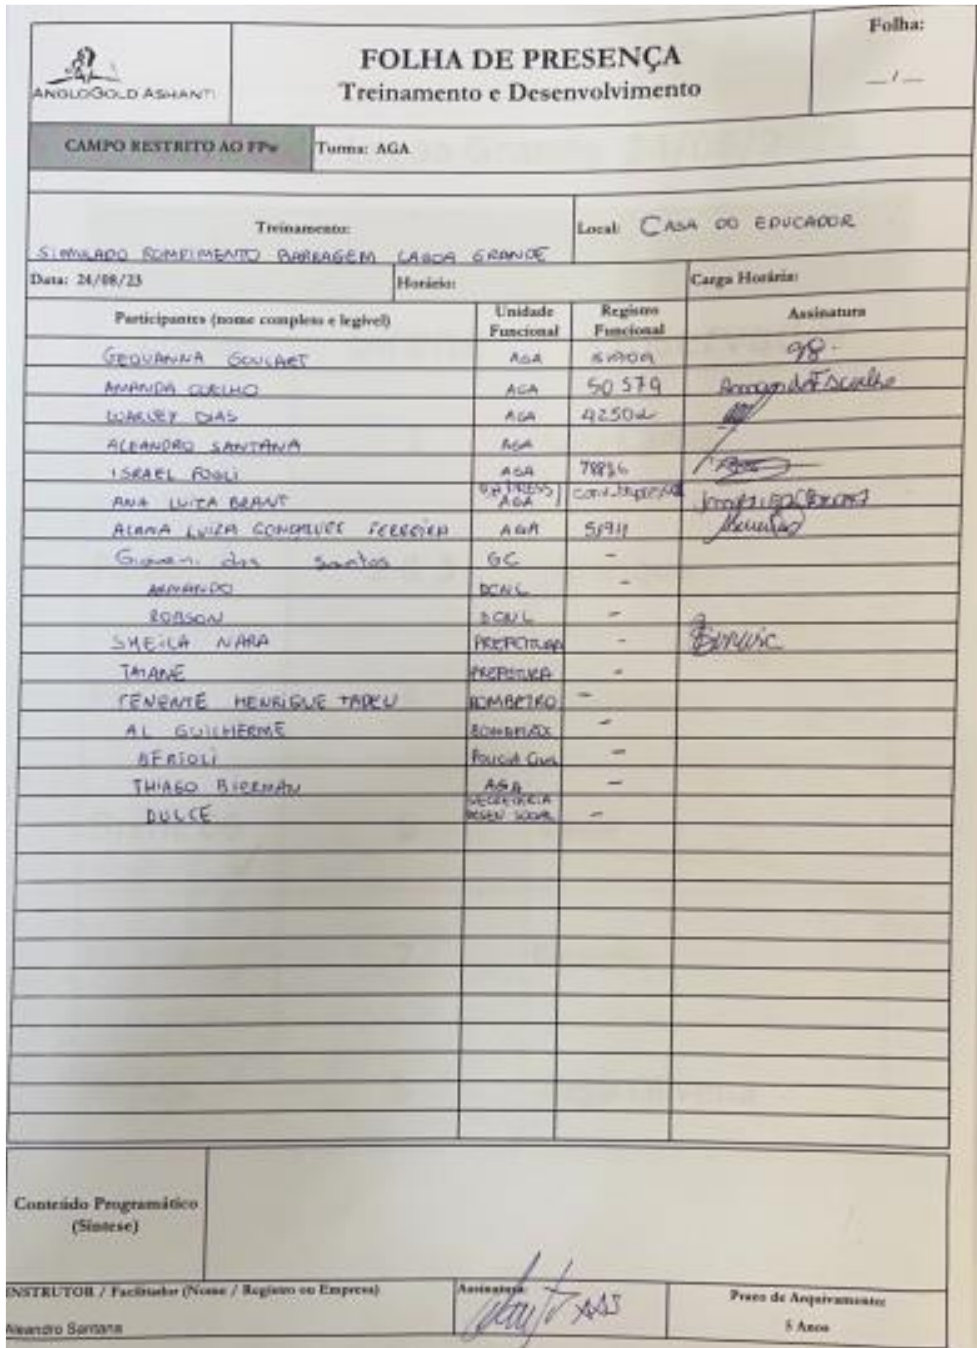 Folha:
ANGLOGOLD ASHANTI
FOLHA DE PRESENÇA
Treinamento e Desenvolvimento
__/__
CAMPO RESTRITO AO FPw
Turma: AGA
Treinamento:
SIMULADO ROMPIMENTO BARRAGEM LAGOA GRANDE
Local: CASA DO EDUCADOR
Data: 24/08/23
Horário:
Carga Horária:
Participantes (nome completo e legível) Unidade Funcional Registro Funcional Assinatura
GEOVANNA GOULART AGA
AMANDA COELHO AGA 50579
WARLEY DIAS AGA
ALEANDRO SANTANA AGA
ISRAEL AGA
ANA LUIZA BRANT AGA
ALANA LUIZA GONÇALVES FERREIRA AGA 51911
Giovani dos Santos GC -
ARMANDO -
ROBSON -
SHEILA NARA PREFEITURA -
TAIANE PREFEITURA -
TENENTE HENRIQUE TADEU BOMBEIRO -
AL GUILHERME -
Policia Civil -
THIAGO AGA -
DULCE SECRETARIA DESEN SOCIAL -
Conteúdo Programático
(Síntese)
INSTRUTOR / Facilitador (Nome / Registro ou Empresa)
Aleandro Santana
Assinatura:
Prazo de Arquivamento:
5 Anos